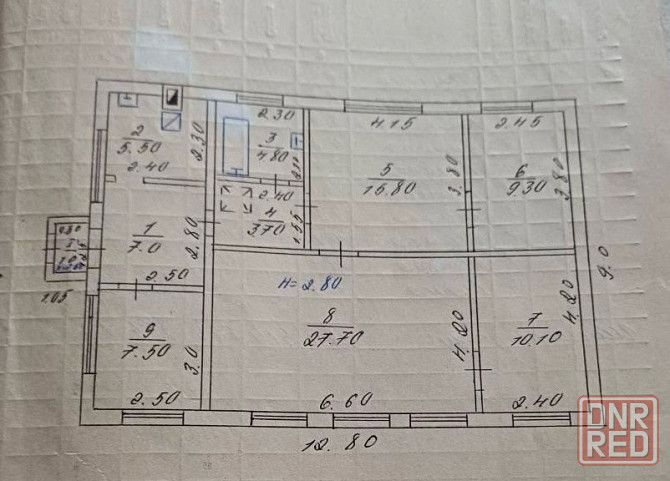 2
5.50
2.40
2.30
2.30
3
4.80
4.15
5
15.80
3.80
2.45
6
9.30
3.80
2.40
4
3.70
1.55
1
7.0
2.80
2.50
0.80
1.05
9.0
H=2.80
8
27.70
4.20
6.60
7
10.10
4.20
2.40
9
7.50
3.0
2.50
12.80
DNR
RED